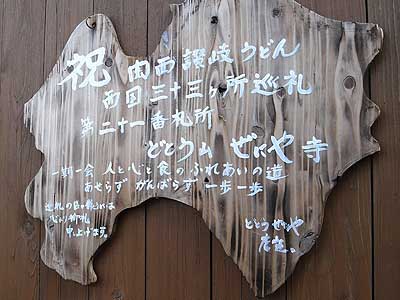 祝 関西讃岐うどん
西国三十三ヶ所巡礼
第二十一番札所
どとう山 ぜにや寺
一期一会 人と心と食のふれあいの道
あせらず がんばらず 一歩一歩
心より御礼
申し上げます。
どとう ぜにや